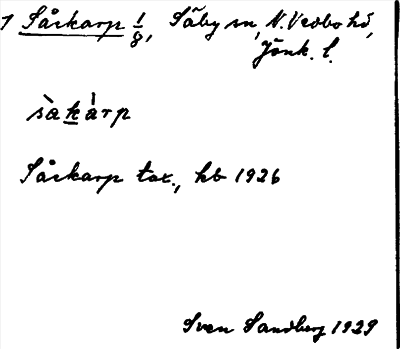 1 Såkarp 1/8, Säby sn, N. Vedbo hd,
Jönk. l.
sàkárp
Såkarp tax., hb 1926
Sven Sandberg 1929